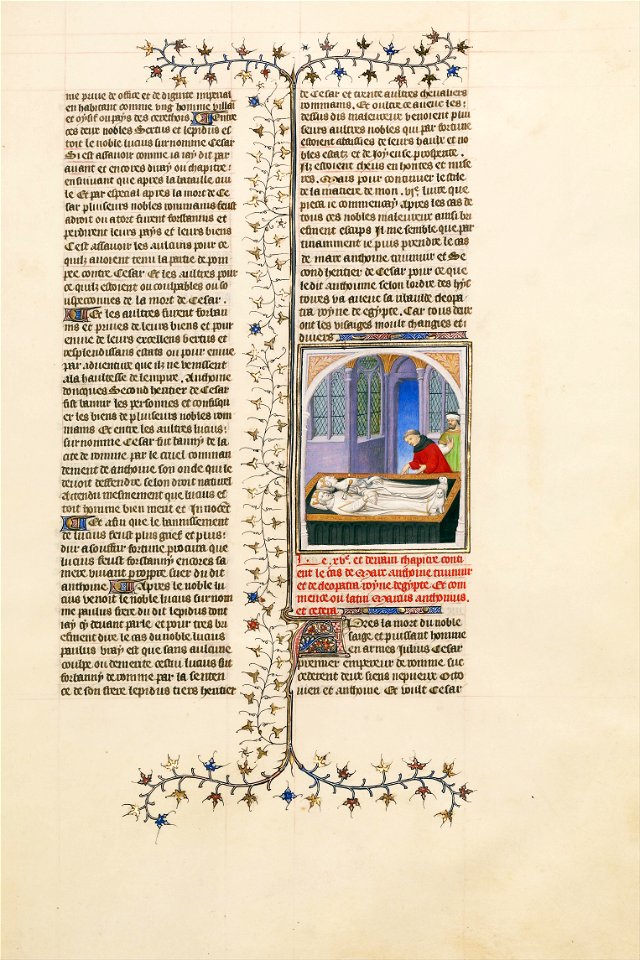 me priue de office et de dignite imperial
en habitant comme vng homme villain
et oysif ou pays des cerethois. Entre
ces deux nobles Sextus et lepidus es
toit le noble lucius surnomme Cesar
Si est assauoir comme ia iay dit par
auant et encores diray ou chapitre
ensuiuant que apres la bataille ciui
le Et par especial apres la mort de Ce
sar pluseurs nobles rommains feust
a droit ou a tort furent forbannis et
perdirent leurs pays et leurs biens
Cest assauoir les aulcuns pour ce
quilz auoient tenu la partie de pom
pee contre Cesar Et les aultres pour
ce quilz estoient ou coulpables ou so
uspeconnes de la mort de Cesar.
Et les aultres furent forban
nis et priues de leurs biens et pour
enuie de leurs excellens vertus et
resplendissans estats ou pour enuie
par aduenture que ilz ne venissent
a la haultesse de lempire. Anthoine
doncques Second heritier de Cesar
fist banir les personnes et confisqu
er les biens de pluiseurs nobles rom
mains Et entre les aultres lucius
surnomme Cesar fut banny de la
cite de romme par le cruel comman
dement de anthoine son oncle qui le
deuoit deffendre selon droit naturel
Attendu mesmement que lucius es
toit homme bien merit et Innocent
Et afin que le bannissement
de lucius feust plus grief et plus
dur a souffrir fortune procura que
lucius feust forbanny encores sa
mere viuant propre suer du dit
anthoine. Apres le noble lu
cius venoit le noble lucius surnom
me paulus frere du dit lepidus dont
iay cy deuant parle et pour tres bri
efment dire le cas du noble lucius
paulus vray est que sans aulcune
coulpe ou demerite cestui lucius fut
forbanny de romme par la senten
ce de son frere lepidus tiers heritier
de Cesar et trente aultres cheualiers
rommains. Et oultre et auecc les
dessus dis maleureux venoient plu
seurs aultres nobles qui par fortune
estoient abaissies de leurs haulx et no
bles estatz et de ioyeuse prosperite.
Ilz estoient cheus en hontes et mise
res. Mais pour continuer le stile
de la matiere de mon .vie. liure que
pieca ie commencay apres les cas de
tous ces nobles maleureux ainsi bri
efment escrips Il me semble que par
auantment ie puis prendre le cas
de marc anthoine triumuir et Se
cond heritier de Cesar pour ce que
le dit anthoine selon lordre des hys
toires va auecc sa ribaulde cleopa
tra royne de egypte. Car tous deux
ont les visaiges moult changies et
diuers
Le .xve. et derrain chapitre conti
ent le cas de Marc anthoine triumuir
et de cleopatra royne degypte. Et com
mence ou latin Marcus anthonius.
et cetera.
Apres la mort du noble
saige et puissant homme
en armes Julius Cesar
premier empereur de romme suc
cederent deux siens nepueux Octo
uien et anthoine. Et voult Cesar